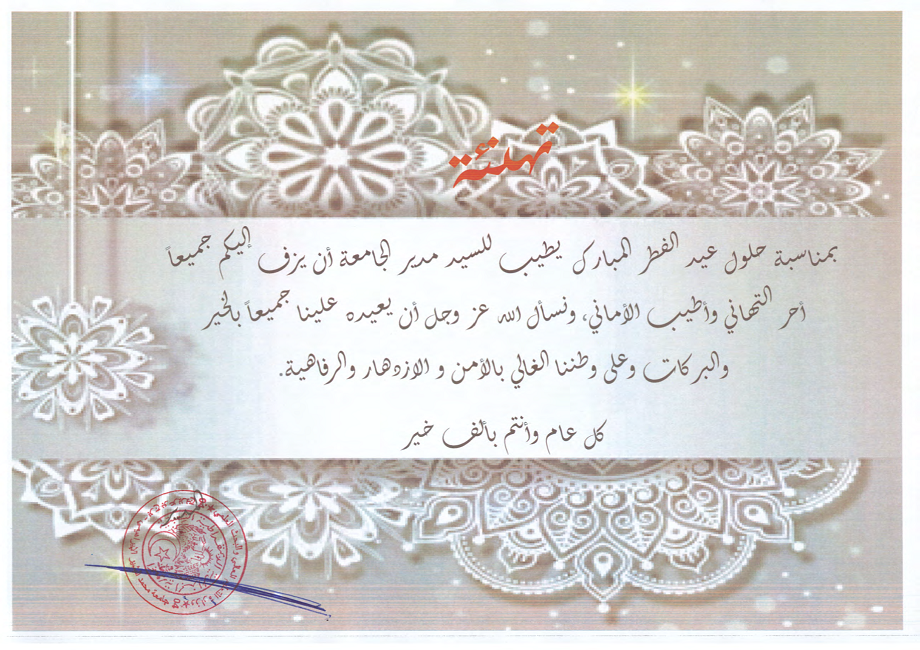 تهنئة
بمناسبة حلول عيد الفطر المبارك يطيب للسيد مدير الجامعة أن يزف إليكم جميعاً
أحر التهاني وأطيب الأماني، ونسأل الله عز وجل أن يعيده علينا جميعاً بالخير
والبركات وعلى وطننا الغالي بالأمن و الازدهار والرفاهية.
كل عام وأنتم بألف خير